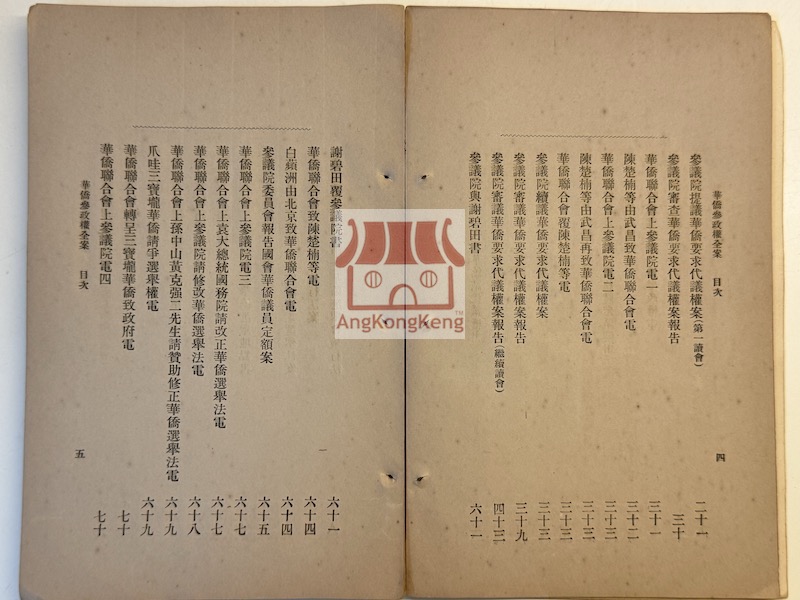 華僑參政權全案　目次
四
參議院提議華僑要求代議權案(第一讀會)　二十一
參議院審查華僑要求代議權案報告　三十
華僑聯合會上參議院電一　三十一
陳楚楠等由武昌致華僑聯合會電　三十二
華僑聯合會上參議院電二　三十三
陳楚楠等由武昌再致華僑聯合會電　三十三
華僑聯合會覆陳楚楠等電　三十三
參議院續議華僑要求代議權案　三十三
參議院審議華僑要求代議權案報告　三十九
參議院審議華僑要求代議權案報告(繼續讀會)　四十三
參議院與謝碧田書　六十一
謝碧田覆參議院書　六十一
華僑聯合會致陳楚楠等電　六十四
白蘋洲由北京致華僑聯合會電　六十四
參議院委員會報告國會華僑議員定額案　六十五
華僑聯合會上參議院電三　六十七
華僑聯合會上袁大總統國務院請改正華僑選舉法電　六十七
華僑聯合會上參議院請修改華僑選舉法電　六十八
華僑聯合會上孫中山黃克强二先生請贊助修正華僑選舉法電　六十九
爪哇三寶壠華僑請爭選舉權電　六十九
華僑聯合會轉呈三寶壠華僑致政府電　七十
華僑聯合會上參議院電四　七十
華僑參政權全案　目次
五
AngKongKeng™